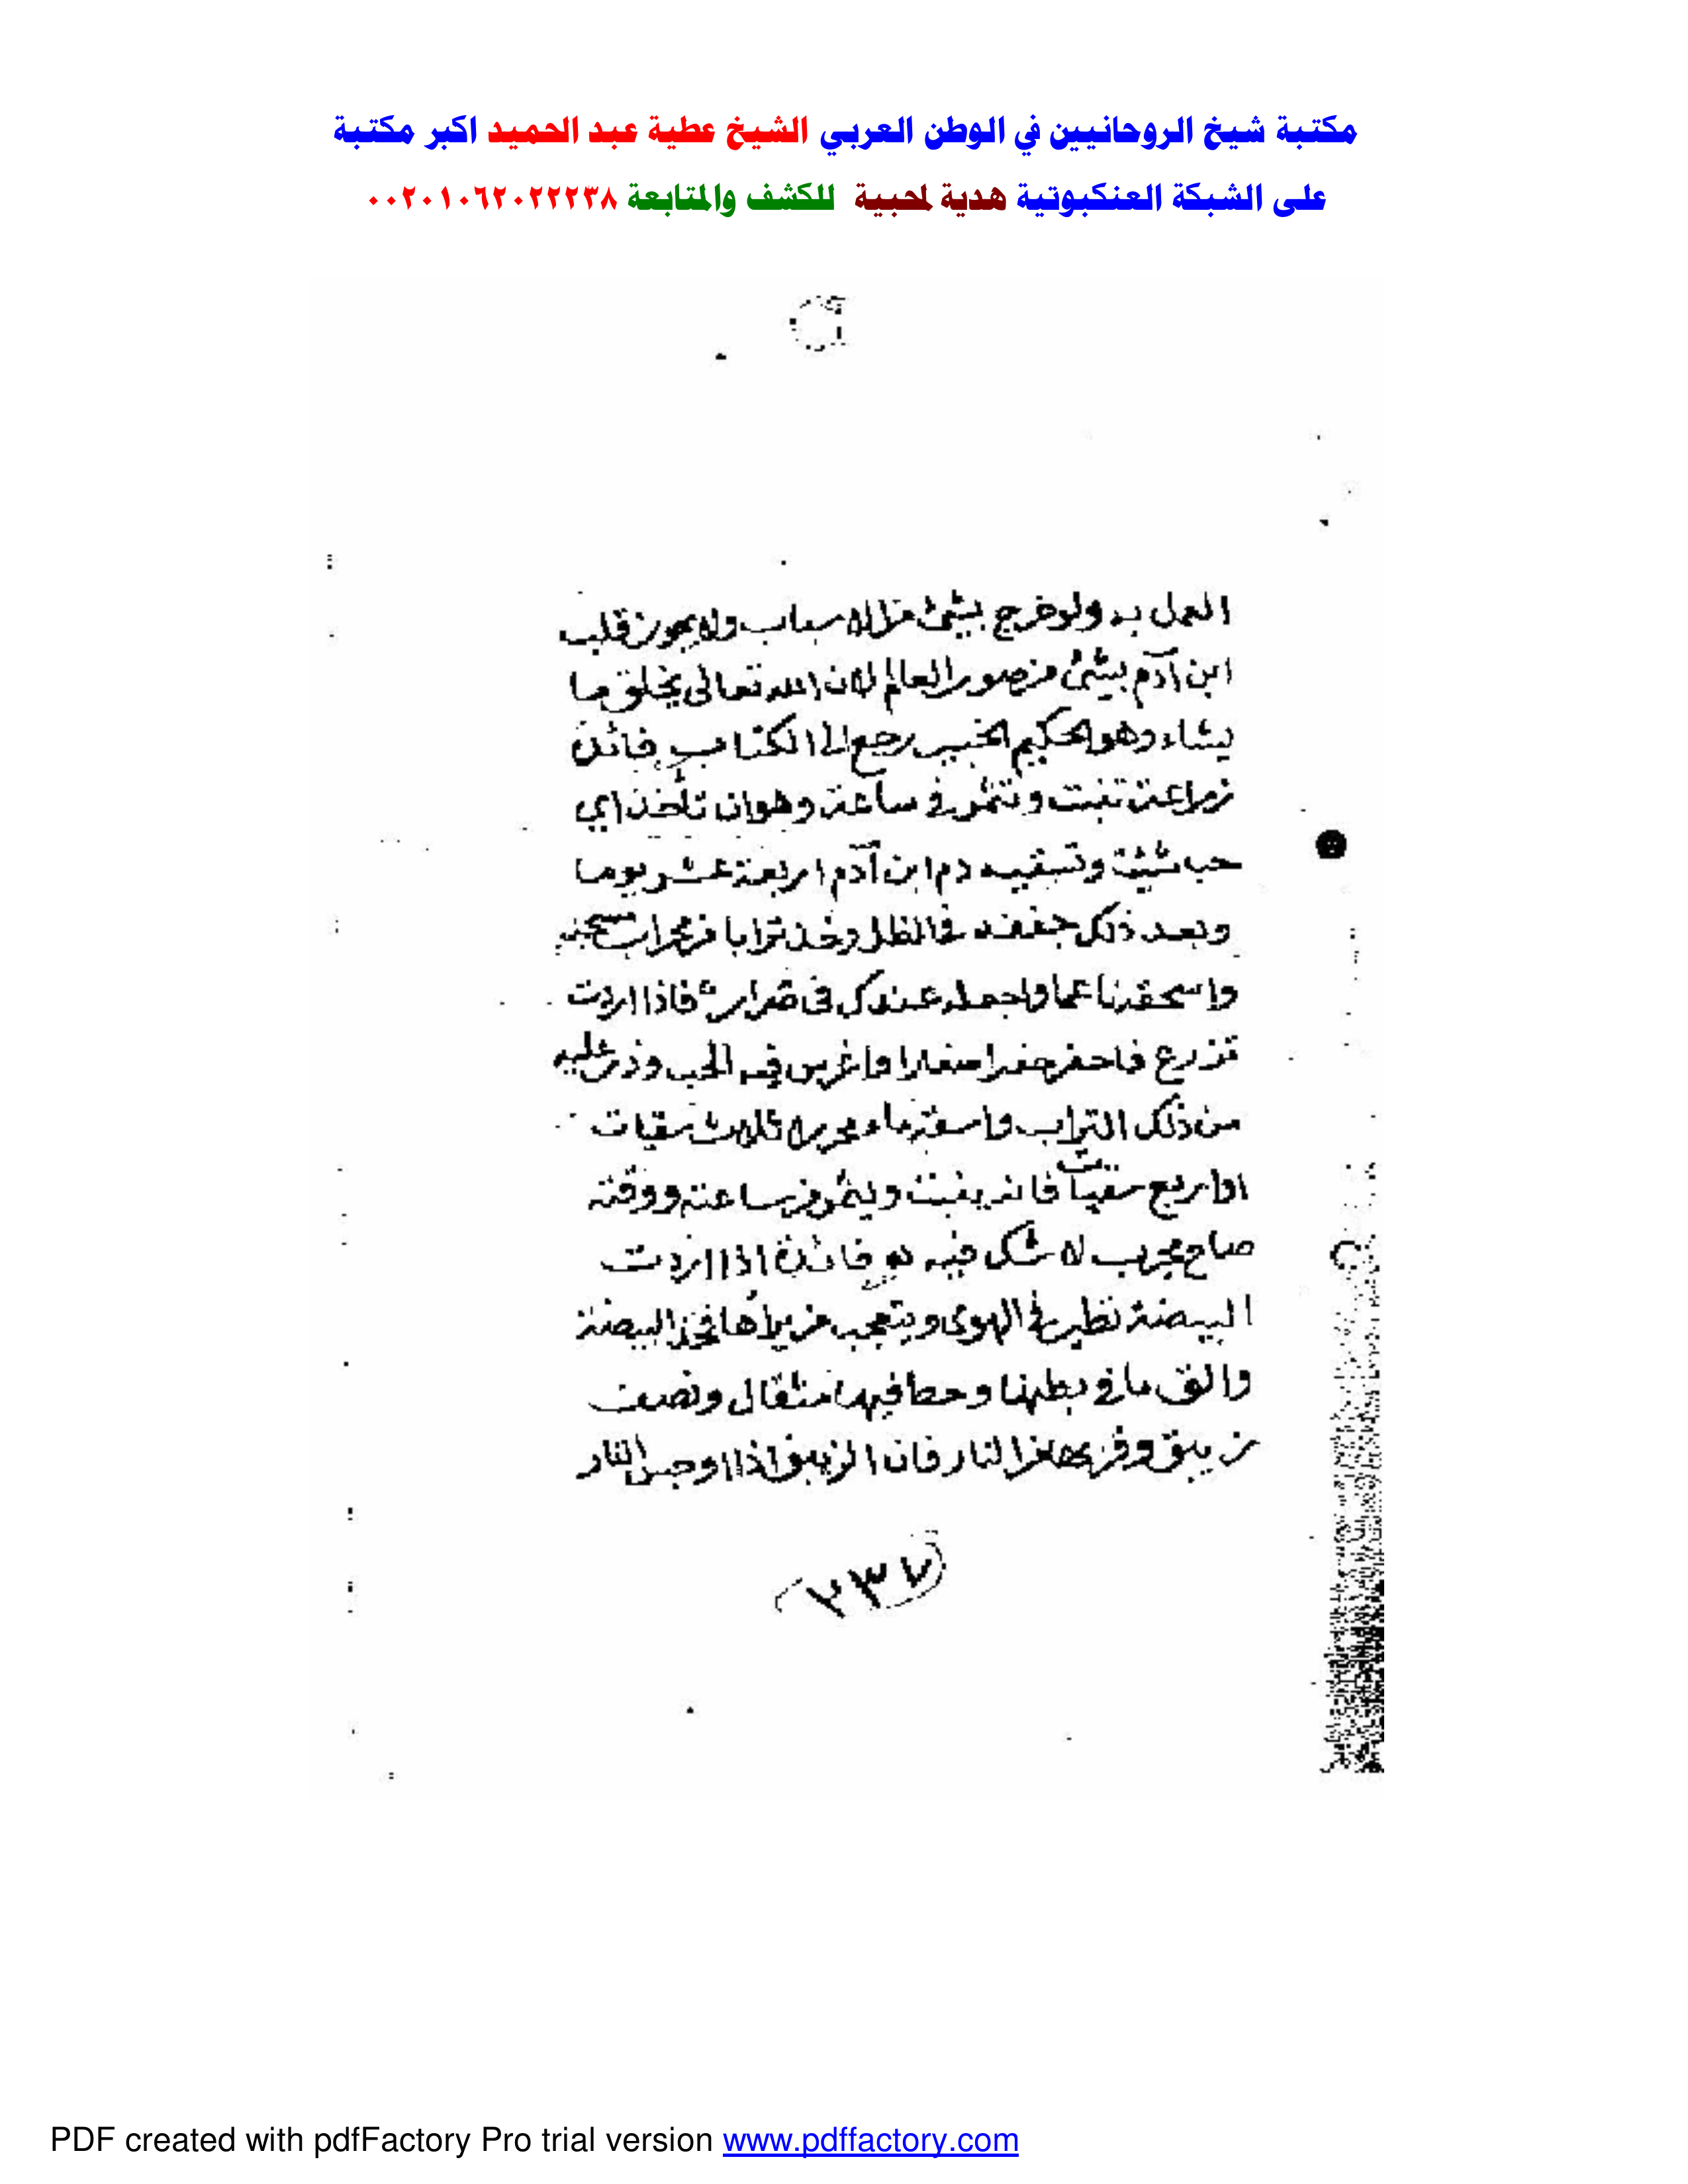 مكتبة شيخ الروحانيين في الوطن العربي الشيخ عطية عبد الحميد اكبر مكتبة
على الشبكة العنكبوتية هدية لمحبية للكشف والمتابعة ٠٠٢٠١٠٦٢٠٢٢٢٣٨
العمل به ولو خرج بشئ من الاسباب ولا يجوز قلب
ابن آدم بشئ من صور العالم لان الله تعالى يخلق ما
يشاء وهو الحكيم الخبير رجع الى الكتاب فائدة
زراعة تنبت وتثمر في ساعة وهو ان تأخذ اي
حب شئت وتسقيه دم ابن آدم اربعة عشر يوما
وبعد ذلك جففه في الظل وخذ ترابا من
واسحقه ناعما واجعله عندك في فاذا اردت
تزرع فاحفر حفرا صغارا واغرس فيه الحب وذر عليه
من ذلك التراب واسقه ماء ثلاث سقيات
او اربع سقيات فانه ينبت ويثمر من ساعته ووقته
صاح مجرب لا شك فيه فائدة اذا اردت
البيضة تطير في الهوى ويتعجب من يراها فخذ البيضة
والق ما في بطنها وحط فيها مثقال ونصف
زيبق وقربها من النار فان الزيبق اذا اوجس النار
٢٣٧
PDF created with pdfFactory Pro trial version www.pdffactory.com